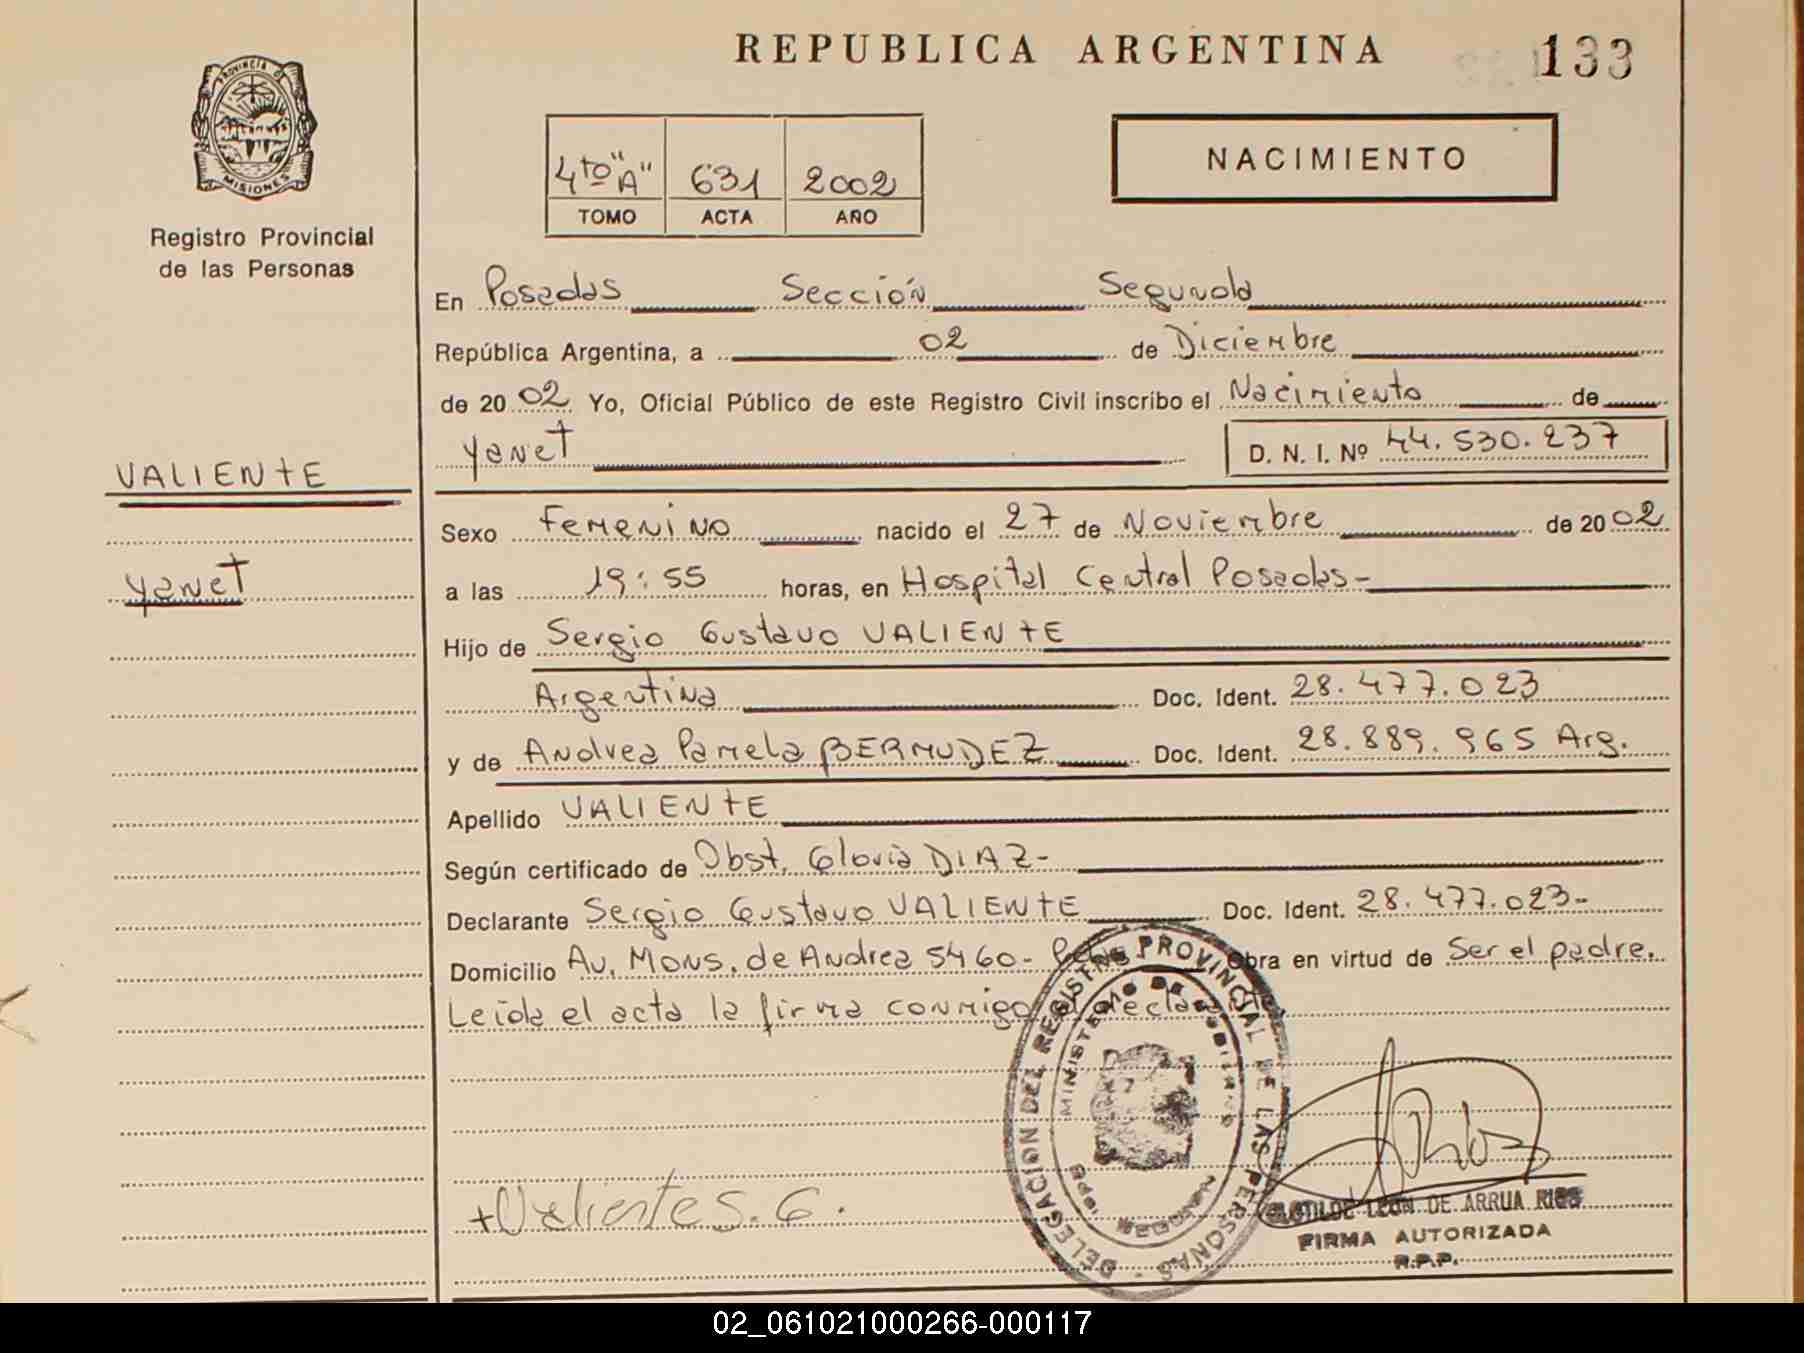 REPUBLICA ARGENTINA
133
PROVINCIA DE
MISIONES
Registro Provincial
de las Personas
4to "A" 631 2002
TOMO ACTA AÑO
NACIMIENTO
En Posadas Sección Segunda
República Argentina, a 02 de Diciembre
de 2002 Yo, Oficial Público de este Registro Civil inscribo el Nacimiento de
Yanet D. N. I. Nº 44.530.237
VALIENTE
Yanet
Sexo Femenino nacido el 27 de Noviembre de 2002
a las 19:55 horas, en Hospital Central Posadas-
Hijo de Sergio Gustavo VALIENTE
Argentina Doc. Ident. 28.477.023
y de Andrea Pamela BERMUDEZ Doc. Ident. 28.889.965 Arg.
Apellido VALIENTE
Según certificado de Obst. Gloria DIAZ-
Declarante Sergio Gustavo VALIENTE Doc. Ident. 28.477.023-
Domicilio Av. Mons. de Andrea 5460- Obra en virtud de Ser el padre.
Leida el acta la firma conmigo el declarante
DELEGACION DEL REGISTRO PROVINCIAL DE LAS PERSONAS
MINISTERIO DE GOBIERNO
+Valiente S. G.
CLOTILDE LEON DE ARRUA RIOS
FIRMA AUTORIZADA
R.P.P.
02_061021000266-000117